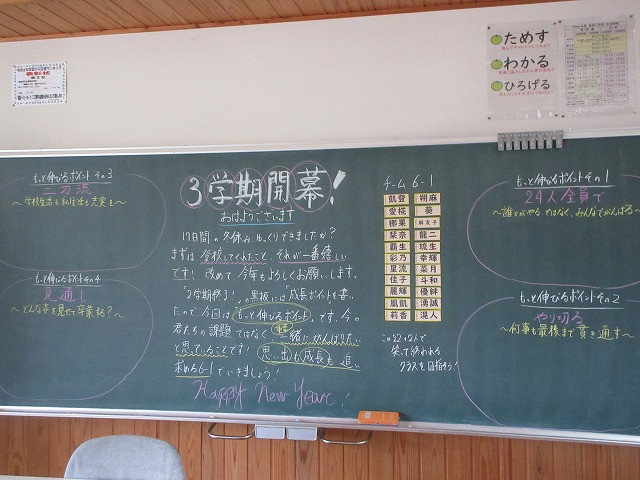 ためす
わかる
ひろげる
もっと伸びるポイントその3
二刀流
～学校生活も私生活も充実を～
もっと伸びるポイントその4
見通し
～どんな姿を見せて卒業する？～
3学期開幕！
おはようございます
17日間の冬休み、ゆっくりできましたか？
まずは登校してくれたこと、それが一番嬉しい
です！改めて、今年もよろしくお願いします。
「2学期終了！」の黒板には「成長ポイントを書い
たので、今回は「もっと伸びるポイント」です。今の
君たちの課題ではなく
一緒にがんばりたい
と思っていることです！思い出も成長も追い
求める6-1でいきましょう！
Happy New Year！
チーム 6-1
凱登 朔麻
愛椛 葵
椰果 麻友子
栞奈 龍二
覇生 琉生
彩乃 幸輝
星流 菜月
佳子 斗和
麗輝 優絆
凰凱 湧誠
莉香 滉人
この22+2人で
笑って終われる
クラスを目指そう！
もっと伸びるポイントその1
24人全員で
～誰かがやるではなく、みんなでがんばる～
もっと伸びるポイントその2
やり切る
～何事も最後まで貫き通す～